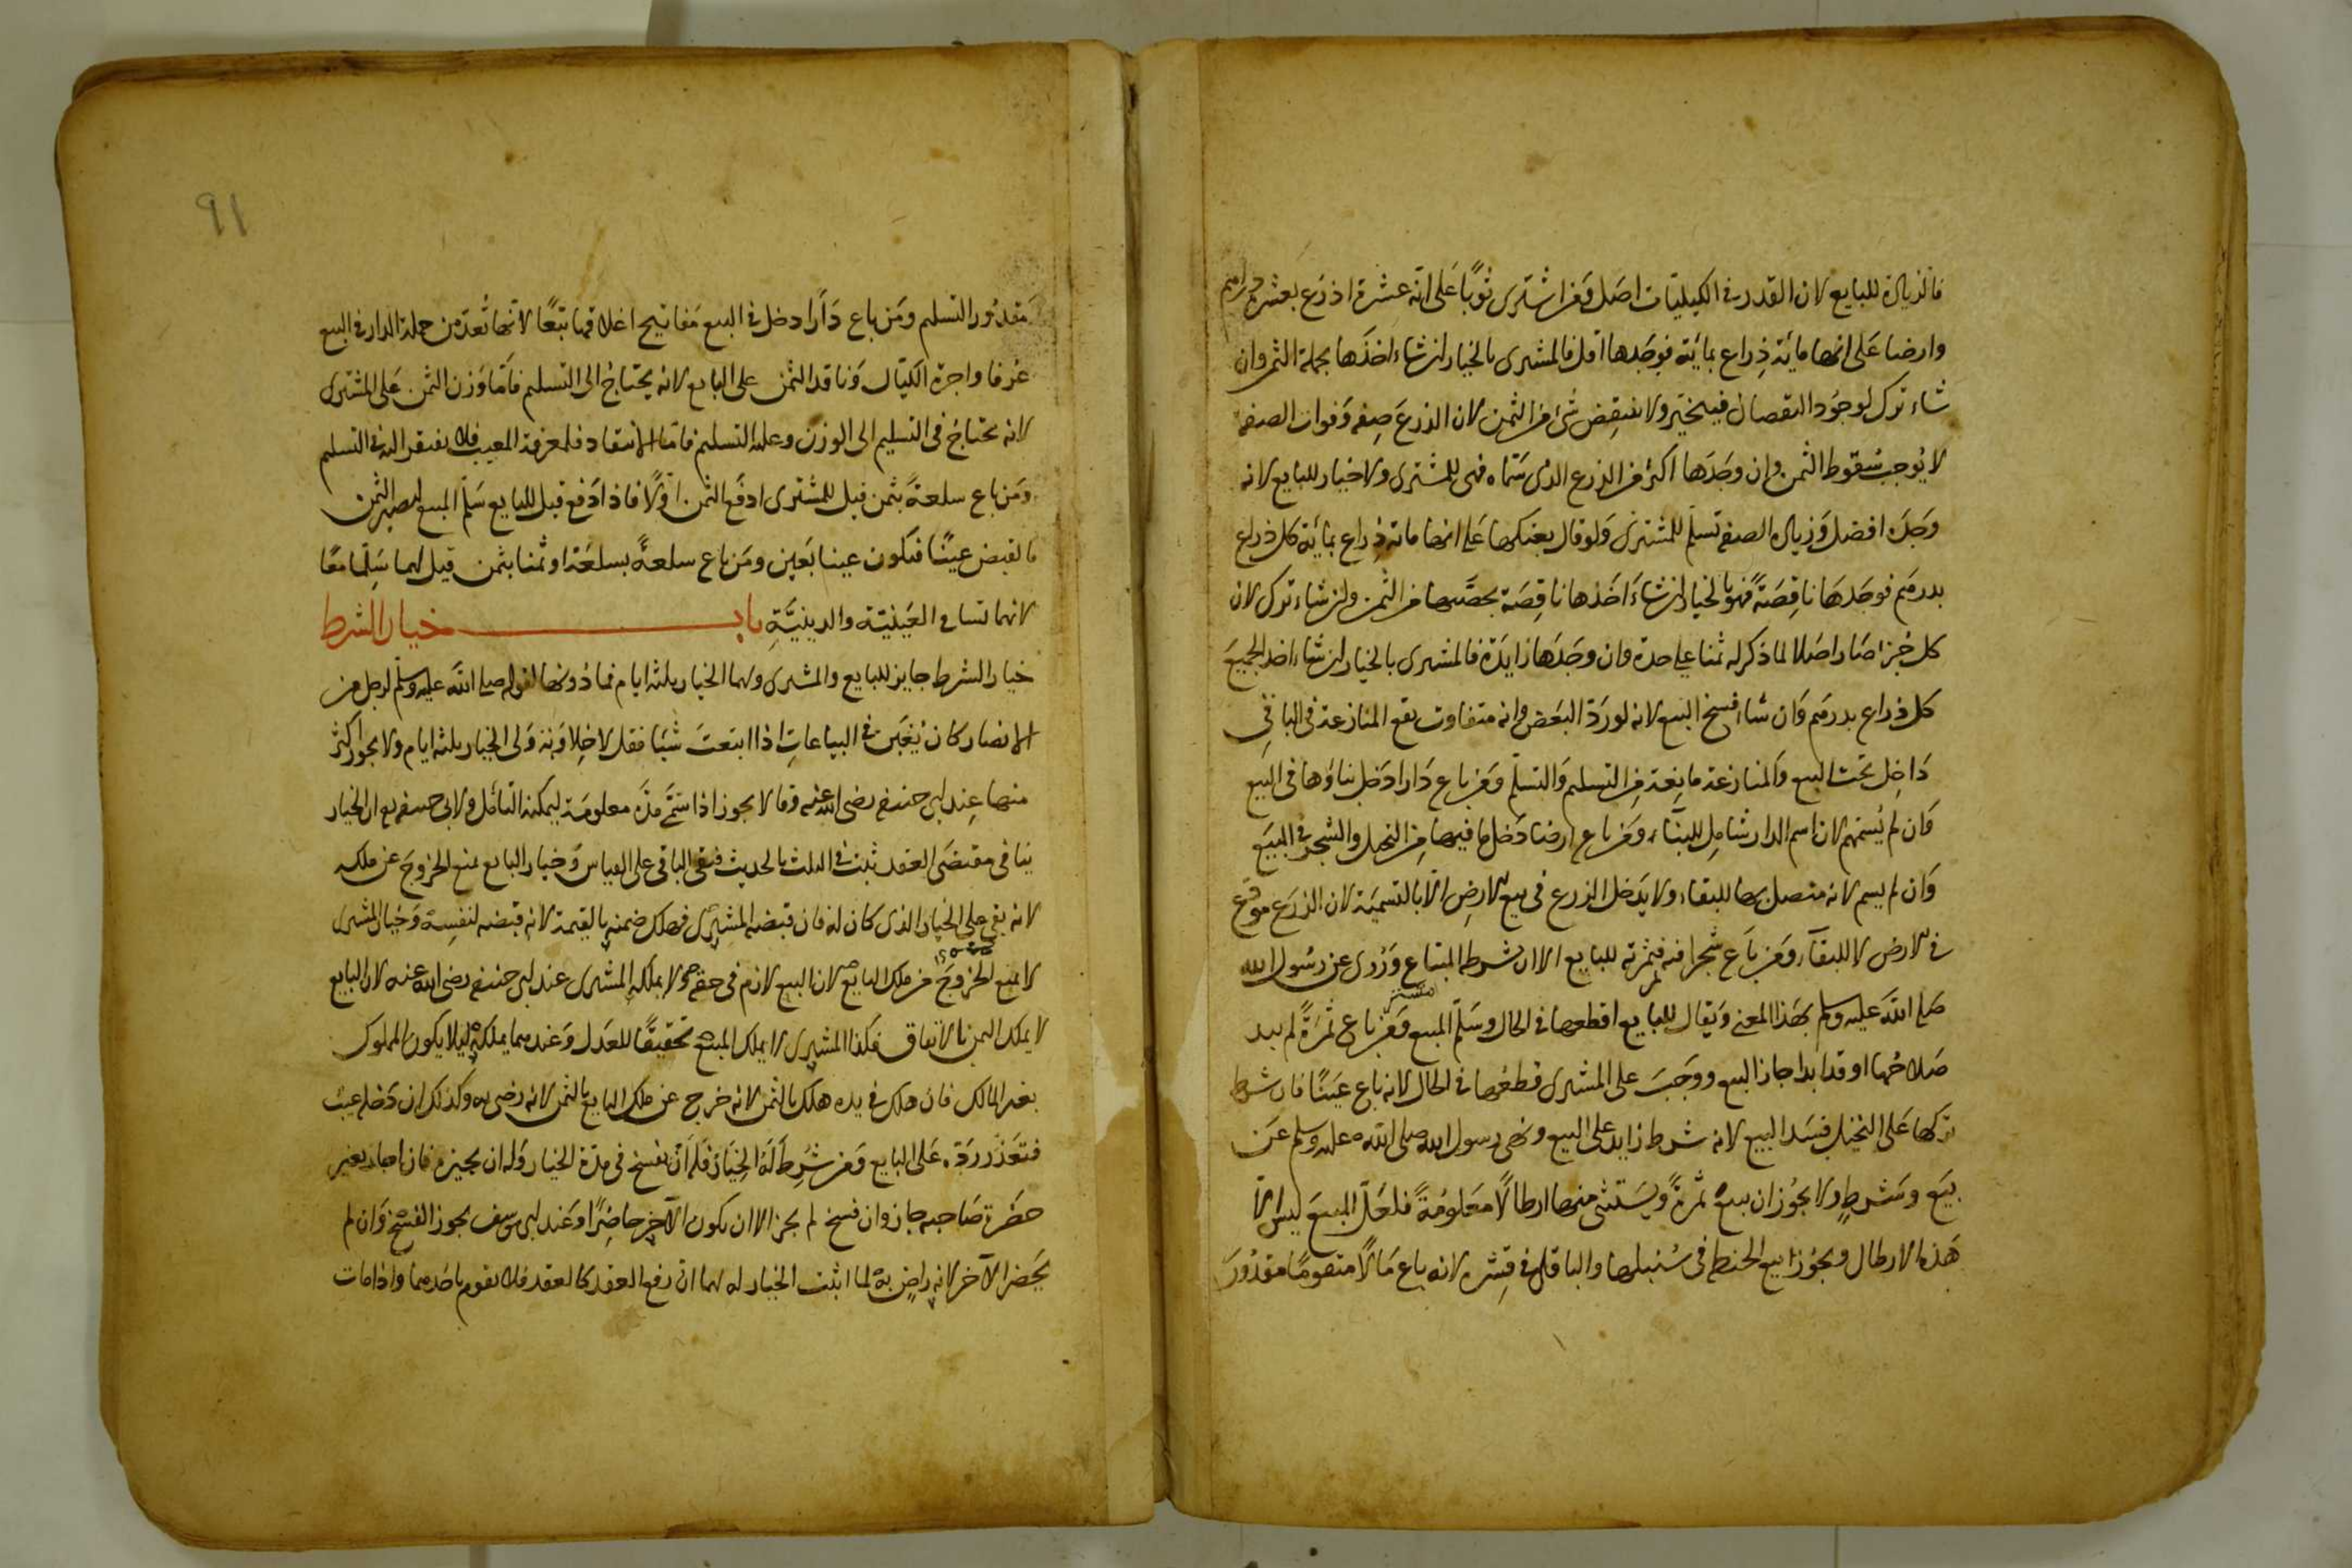 فالزيادة للبايع لان القدر في الكيليات اصل ومن اشترى ثوبًا على انه عشرة اذرع بعشرة دراهم
وارضا على انها مائة ذراع بمائة فوجدها اقل فالمشترى بالخيار ان شاء اخذها بجملة الثمن وان
شاء ترك لوجود النقصان فيخير ولا ينقص شئ من الثمن لان الذرع صفة وفوات الصفة
لا يوجب سقوط الثمن وان وجدها اكثر من الذرع الذى سماه فهى للمشترى ولا خيار للبايع لانه
وجده افضل وزيادة الصفة تسلم للمشترى ولو قال بعتكها على انها مائة ذراع بمائة كل ذراع
بدرهم فوجدها ناقصة فهو بالخيار ان شاء اخذها ناقصة بحصتها من الثمن وان شاء ترك لان
كل جزء صار اصلا لما ذكر له ثمنا على حدة وان وجدها زايدة فالمشترى بالخيار ان شاء اخذ الجميع
كل ذراع بدرهم وان شاء فسخ البيع لانه لو رد البعض وانه متفاوت يقع المنازعة فى الباقى
داخل تحت البيع والمنازعة مانعة من التسليم والتسلم ومن باع دارا دخل بناؤها فى البيع
وان لم يسمهم لان اسم الدار شامل للبناء ومن باع ارضا دخل ما فيها من النخيل والشجر في البيع
وان لم يسم لانه متصل بها للبقاء ولا يدخل الزرع فى بيع الارض الا بالتسمية لان الزرع موضع
في الارض لا للبقاء ومن باع شجرا فيه ثمر فثمرته للبايع الا ان شرط المبتاع وروى عن رسول الله
صلى الله عليه وسلم بهذا المعنى ويقال للبايع اقطعها في الحال وسلم المبيع ومن باع ثمرةً لم يبد
صلاحها او قد بدا جاز البيع ووجب على المشترى قطعها في الحال لانه باع عينًا فان شرط
تركها على النخيل فسد البيع لانه شرط زايد على البيع ونهى رسول الله صلى الله عليه وسلم عن
بيع وشرط ولا يجوز ان يبيع ثمرةً ويستثنى منها ارطالًا معلومةً فلعل المبيع ليس الا
هذه الارطال ويجوز بيع الحنطة فى سنبلها والباقلى في قشره لانه باع مالًا متقومًا مقدور
٩١
مقدور التسليم ومن باع دارا دخل في البيع مفاتيح اغلاقها تبعًا لانها تعد من جملة الدار في البيع
عرفا واجرة الكيال وناقد الثمن على البايع لانه يحتاج الى التسليم فاما وزن الثمن على المشترى
لانه يحتاج فى التسليم الى الوزن وعليه التسليم فاما الانتقاد فلمعرفة المعيب فلا يفتقر اليه في التسليم
ومن باع سلعةً بثمن قيل للمشترى ادفع الثمن اولًا فاذا دفع قيل للبايع سلم المبيع ليصير الثمن
بالقبض عينًا فيكون عينا بعين ومن باع سلعةً بسلعة او ثمنا بثمن قيل لهما سلما معًا
لانهما تساويا في العينية والدينية باب خيار الشرط
خيار الشرط جايز للبايع والمشترى ولهما الخيار ثلثه ايام فما دونها لقوله صلى الله عليه وسلم لرجل من
الانصار كان يغبن في البياعات اذا ابتعت شيئا فقل لا خلابة ولى الخيار ثلثه ايام ولا يجوز اكثر
منها عند ابى حنيفه رضى الله عنه وقالا يجوز اذا سمى مدة معلومة ليمكنه التأمل ولابى حنيفه ان الخيار
ينافى مقتضى العقد ثبت في الثلث بالحديث فبقى الباقى على القياس وخيار البايع يمنع الخروج عن ملكه
لانه بقى على الخيار الذى كان له فان قبضه المشترى فهلك ضمنه بالقيمة لانه قبضه لنفسه وخيار المشترى
لا يمنع الخروج من ملك البايع لان البيع لازم فى حقه ولا يملكه المشترى عند ابى حنيفه رضى الله عنه لان البايع
لا يملك الثمن بالاتفاق فكذا المشترى لا يملك المبيع تحقيقًا للعدل وعندهما يملكه ليلا يكون المملوك
بغير المالك فان هلك في يده هلك بالثمن لانه خرج عن ملك البايع بالثمن لانه رضى به وكذلك ان دخله عيب
فتعذر رده على البايع ومن شرط له الخيار فله ان يفسخ فى مدة الخيار وله ان يجيزه فان اجاز بغير
حضرة صاحبه جاز وان فسخ لم يجز الا ان يكون الآخر حاضرًا وعند ابى يوسف يجوز الفسخ وان لم
يحضر الآخر لانه راض به لما اثبت الخيار له لهما ان رفع العقد كالعقد فلا يقوم باحدهما واذا مات